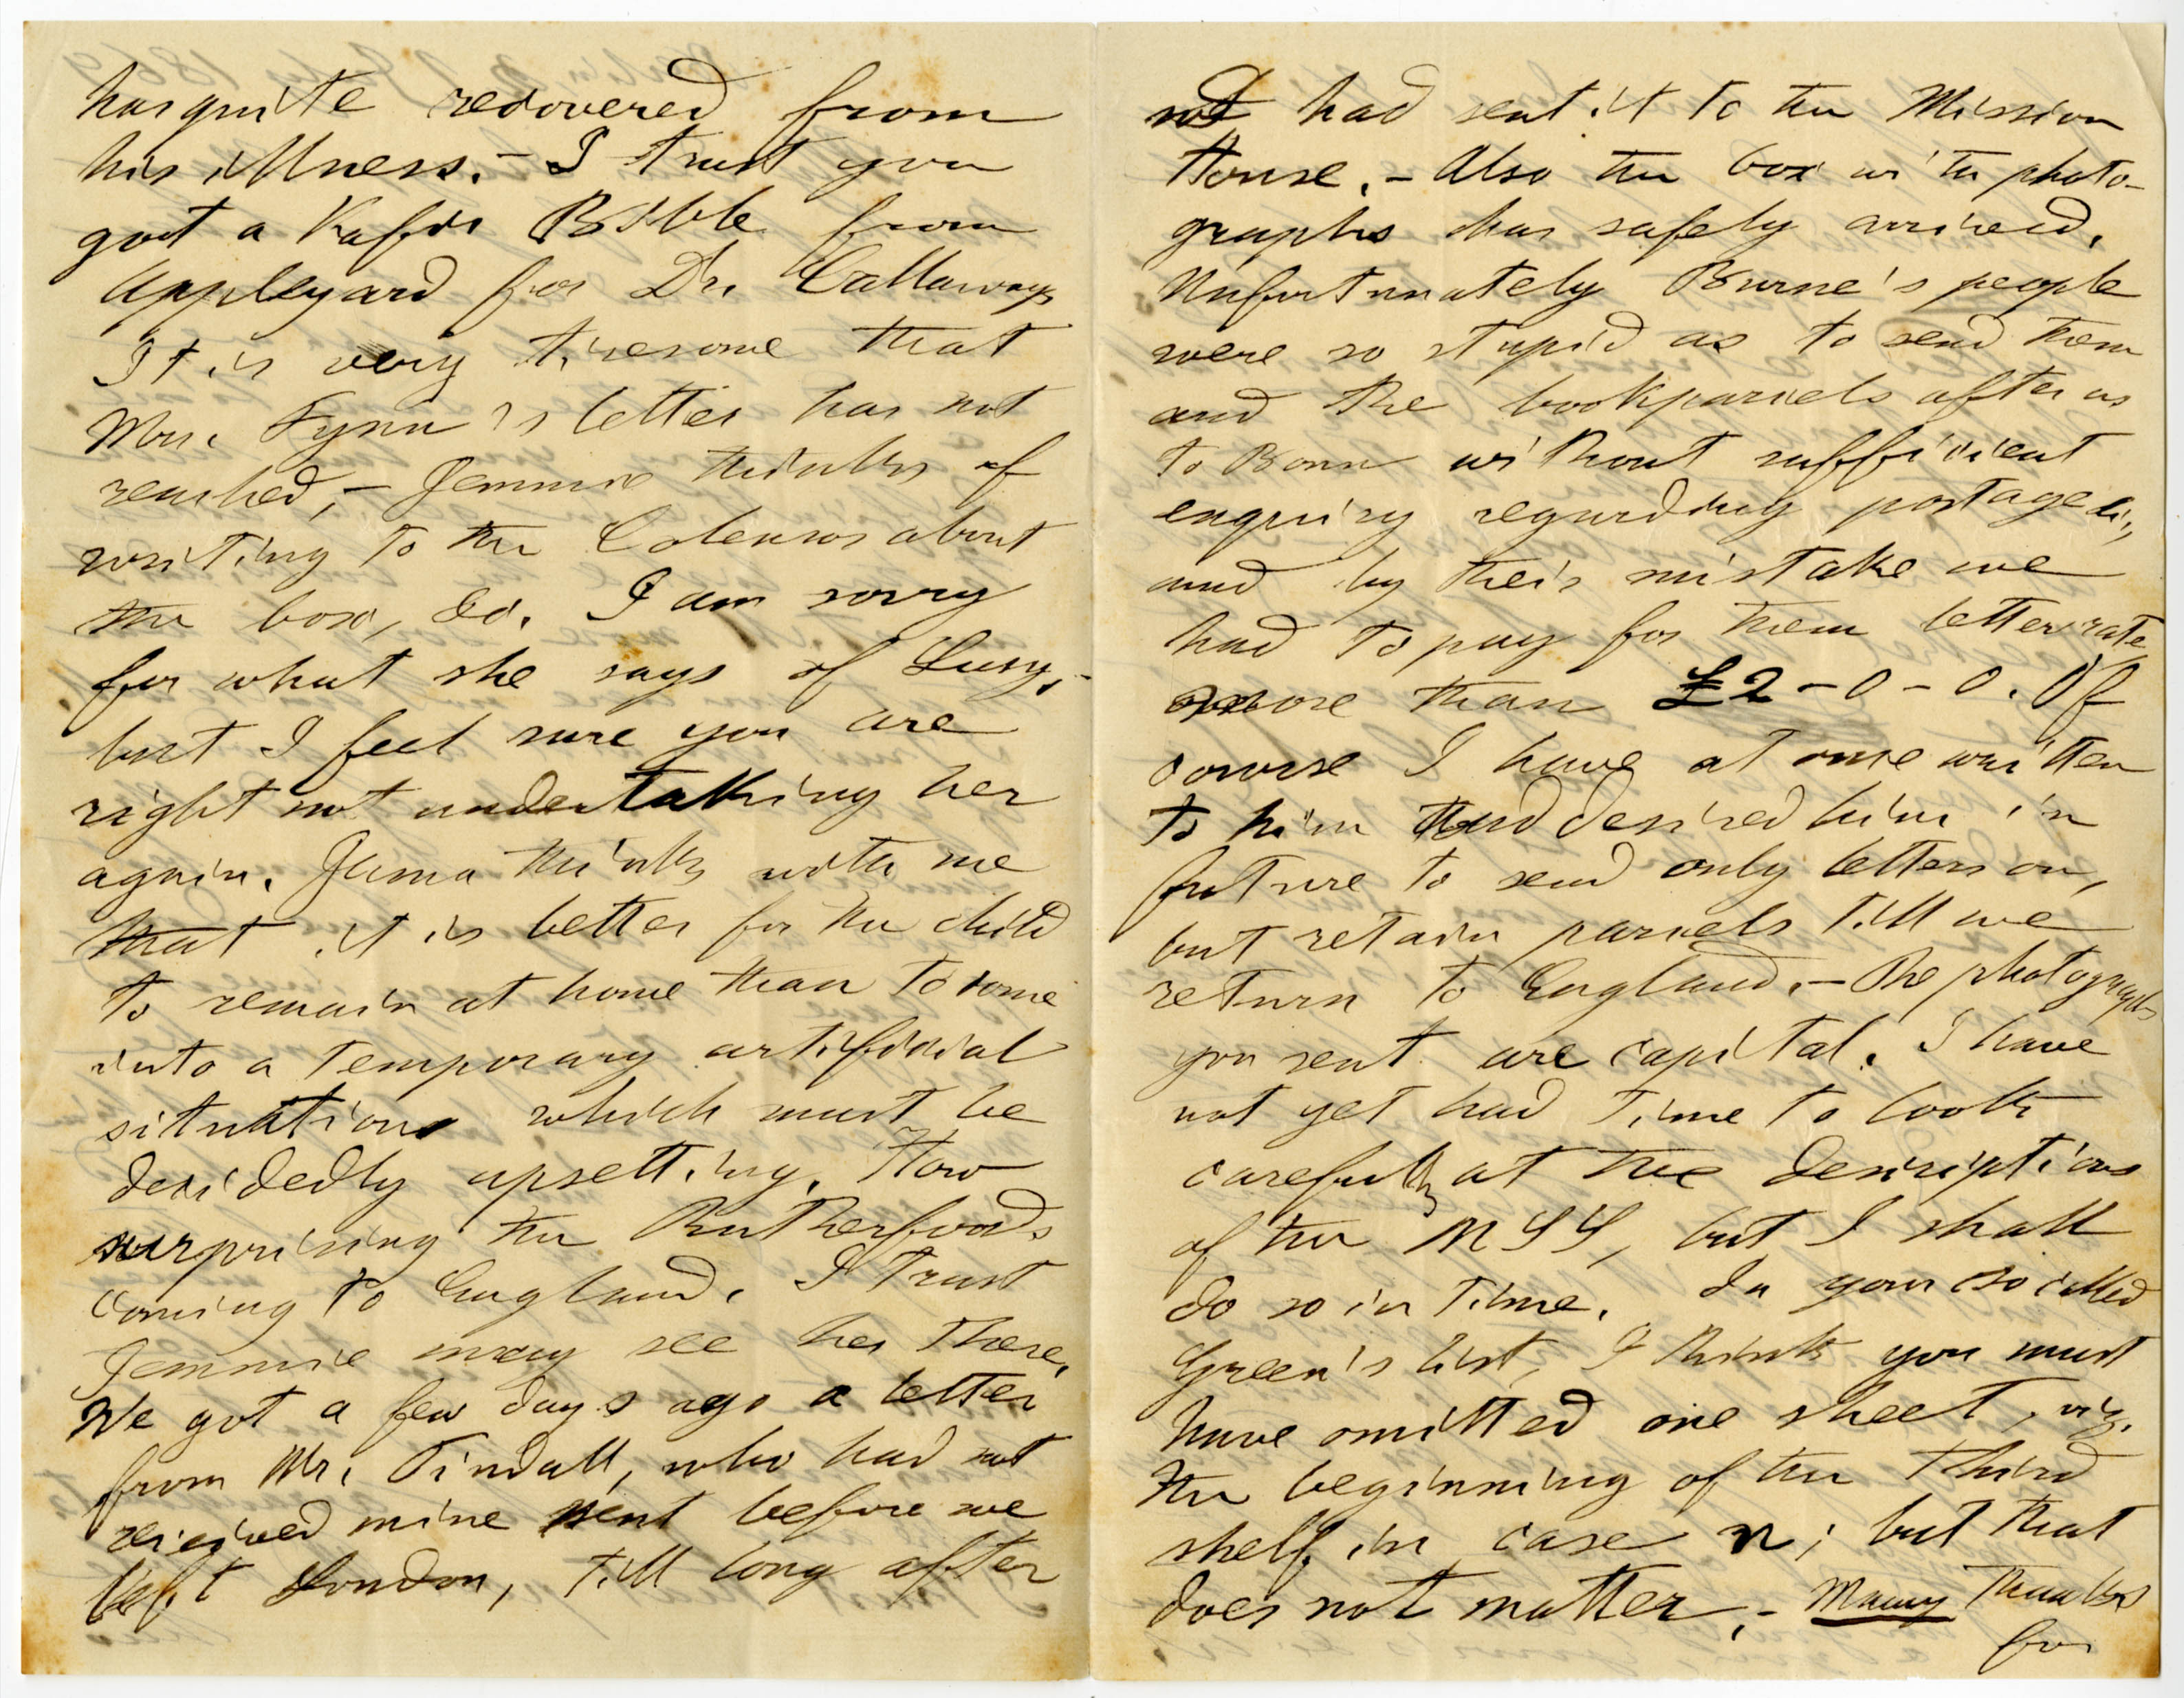 has quite recovered from
his illness. – I trust you
got a Kafir Bible from
Appleyard for Dr. Callaway
It is very tiresome that
Mrs. Fynn's letter has not
reached, – Jemmie thinks of
writing to the Colensos about
the box, &c. I am sorry
for what she says of Lucy, –
but I feel sure you are
right not undertaking her
again. Jema thinks with me
that it is better for the child
to remain at home than to come
into a temporary artificial
situation which must be
decidedly upsetting. How
surprising the Rutherfoords
coming to England. I trust
Jemmie may see her there.
We got a few days ago a letter
from Mr. Tindall, who had not
received mine sent before we
left London, till long after
had sent it to the Mission
House. – Also the box with photo-
graphs has safely arrived.
Unfortunately Burne's people
were so stupid as to send them
and the bookparcels after us
to Bonn without sufficient
enquiry regarding postage &c,
and by their mistake we
had to pay for them letterrate
more than £2-0-0. Of
course I have at once written
to him and desired him in
future to send only letters on,
but retain parcels till we
return to England. – The photographs
you sent are capital. I have
not yet had time to look
carefully at the descriptions
of the MSS, but I shall
do so in time. In your so called
Green's list, I think you must
have omitted one sheet, viz.
the beginning of the third
shelf in case n; but that
does not matter. – Many thanks
for